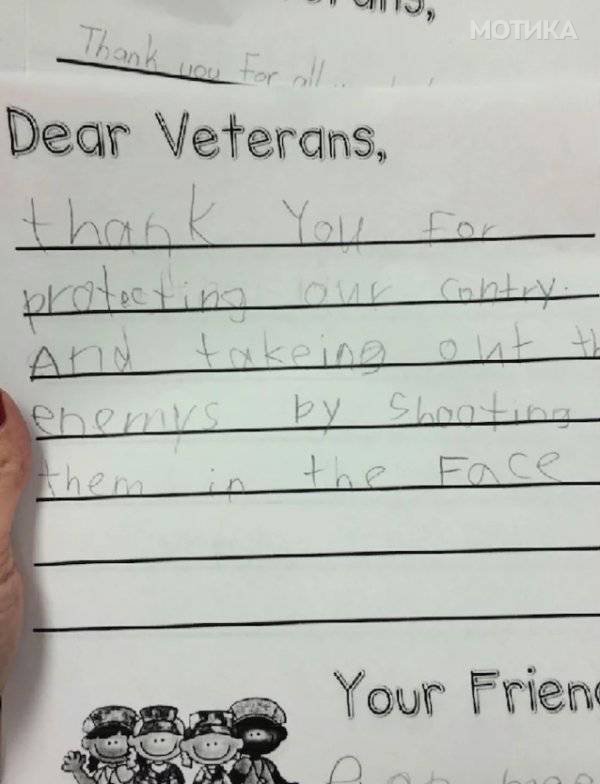 МОТИКА
Thank you For all
Dear Veterans,
thank You For
protecting our contry.
And takeing out
enemys by Shooting
them in the Face
Your